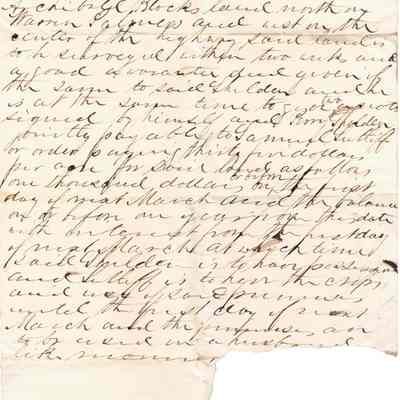 Archibald Blocks land north on
Warren Glineps and west on the
center of the highway said land is
to be surveyed within two weeks and
a good a warantee deed given of
the same to said Shelden and he
is at the same time to give two notes
signed by himself and Shelden
jointly payable to Samuel
or order paying thirty five dollars
per acre for said land as follows
one thousand dollars on the first
day of next March and the balance
on or before on year from this date
with interest from the first day
of next March at which time
said Shelden is to have possession
and is to have the crops
and use of said premises
until the first day of next
March and the premises are
to be used in a husband
like manner